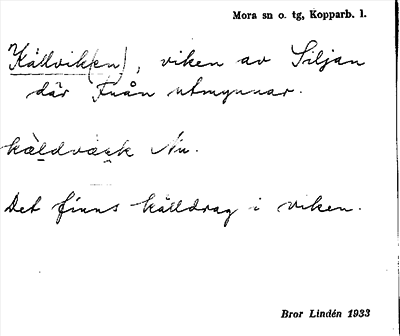 Mora sn o. tg, Kopparb. l.
Källvik(en), viken av Siljan
där Fuån utmynnar.
Det finns källdrag i viken.
Bror Lindén 1933